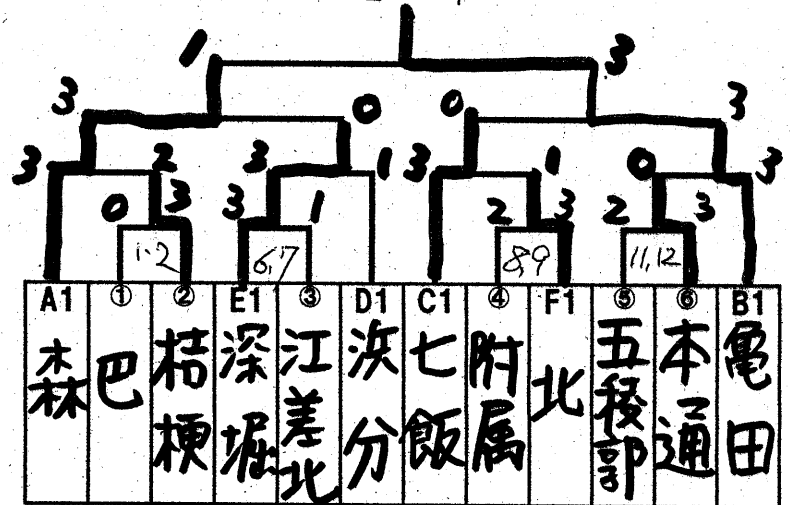 1 3
3 0 0 3
3 2 3 1 3 1 0 3
0 3 3 1 2 3 2 3
1・2 6,7 8,9 11,12
A1 ① ② E1 ③ D1 C1 ④ F1 ⑤ ⑥ B1
森 巴 桔梗 深堀 江差北 浜分 七飯 附属 北 五稜郭 本通 亀田